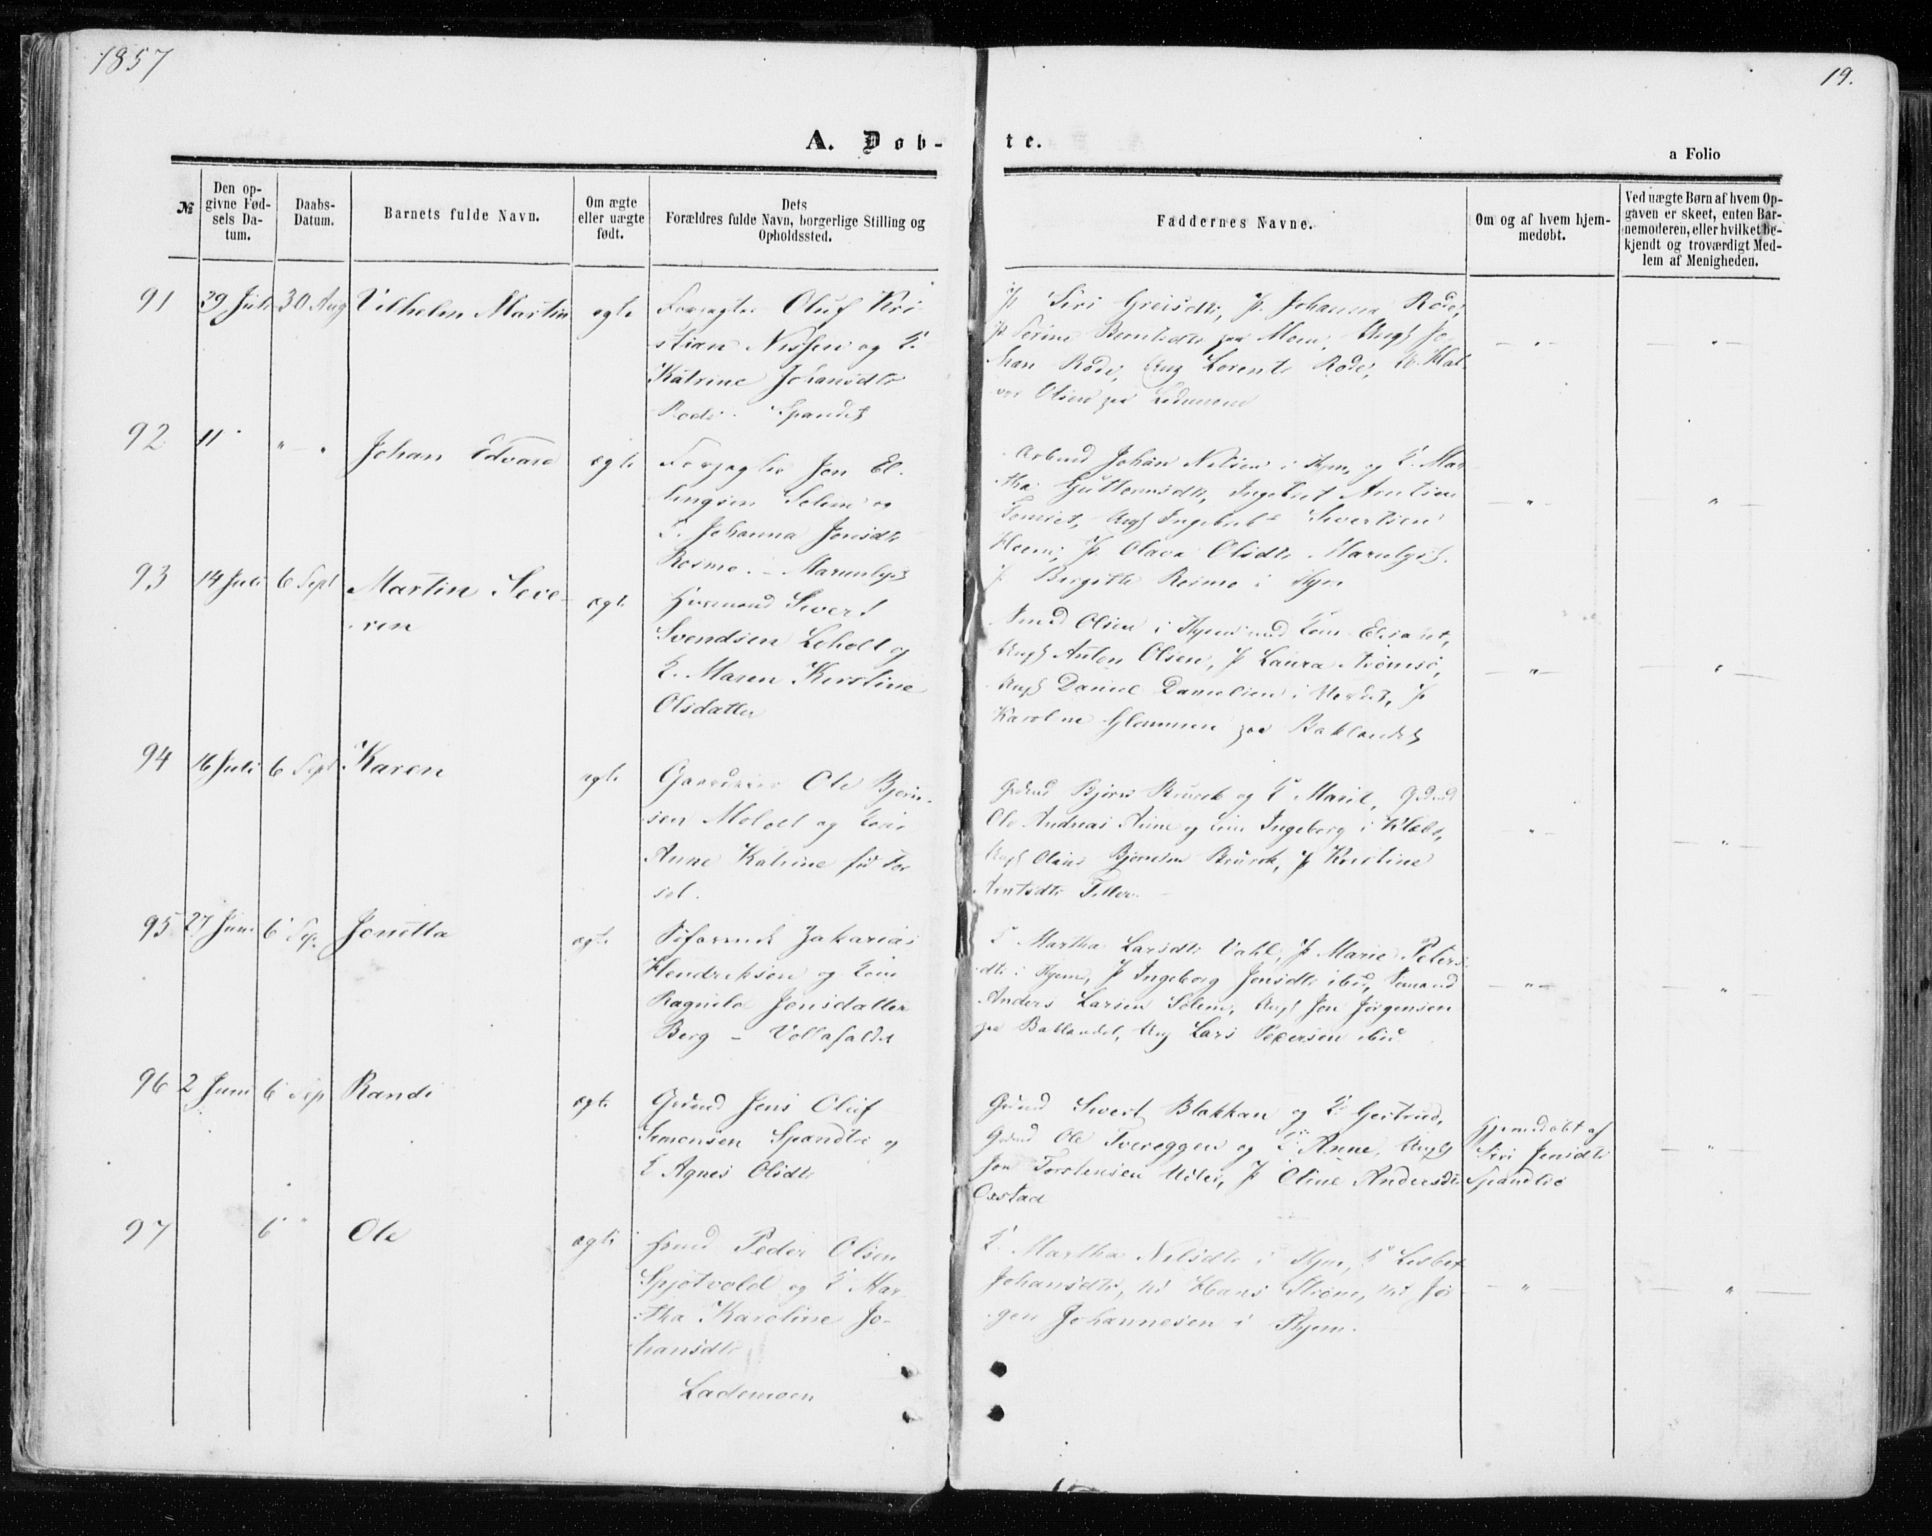 1857
19.
A. Døb-
te.
a Folio
№
Den op-
givne Fød-
sels Da-
tum.
Daabs-
Datum.
Barnets fulde Navn.
Om ægte
eller uægte
født.
Dets
Forældres fulde Navn, borgerlige Stilling og
Opholdssted.
Faddernes Navne.
Om og af hvem hjem-
medøbt.
Ved uægte Børn af hvem Op-
gaven er skeet, enten Bar-
nemoderen, eller hvilket be-
kjendt og troværdigt Med-
lem af Menigheden.
91 29 Juli 30 Aug Vilhelm Martin ægte
Forpagter Oluf Kri-
stian Nissen og K.
Katrine Johansdtr
Rode. Spandet
P. Siri Greisdtr, P. Johanna Rode,
P. Serine Berntsdtr paa Moen, Ungk Jo-
han Rode, Ung Lorents Rode, K. Hal-
vor Olsen paa
92 11 " " Johan Edvard ægte
Forpagter Jon El-
lingsen Solem og
K. Johanna Jonsdtr
Rosmo. - Marienlyst
Arbmd Johan Nilsen i Thjem og K. Mar-
tha Guttormsdtr, Ingebret Arntsen
Ungk Ingebret Sivertsen
Hoem, P Olava Olsdtr Marienlyst.
P Birgitte Rosmo i Thjem
93 14 Juli 6 Sept Martin Seve-
ren ægte
Husmand Sivert
Svendsen Leholt og
K. Maren Kirstine
Olsdatter
Smed Olsen i Thjem med Kone Elisabet,
Ungk Anton Olsen, P Laura Tromsø,
Ungk Daniel Danielsen i P
Karoline Glemmen paa Baklandet
94 16 Juli 6 Sept Karen ægte
Gaardmand Ole Bjørn-
sen Moholt og Kone
Anne Katrine
Grdmd Bjørn Bruråk og K Marit, Grdmd
Ole Andreas Aune og Kone Ingeborg i Klæbu,
Ungk Olaus Bjørnsen Bruråk, P Kristine
Arntsdtr Tiller.
95 27 Juni 6 Sep. Jonetta ægte
Søfarende Zakarias
Hendriksen og Kone
Ragnela Jonsdatter
Berg - Voldsfaldet
K Martha Larsdtr Vahl, P Marie Peters-
dtr i Thjem, P Ingeborg Jensdtr ibid, Smand
Anders Larsen Solem, Ungk Jon Jørgensen
paa Baklandet, Ung Lars Pedersen ibid
96 2 Juni 6 Sep Randi ægte
Grdmd Jens Oluf
Simonsen Spandli og
K Agnes Olsdtr
Grdmd Sivert Blakkan og K. Gjertrud,
Grdmd Ole Tvereggen og K Anne, Ungk
Jon Torstensen P Oline Andersdtr
Oxstad
Hjemmedøbt af
Siri Jensdtr
Spandli
97 6 " Ole ægte
Hmd Peder Olsen
Spjotvold og K Mar-
tha Karoline Jo-
hansdtr
Lademoen
K. Martha Nilsdtr i Thjem, K Lisbet
Johansdtr, Hans Strøm, Jør-
gen Johannesen i Thjem.